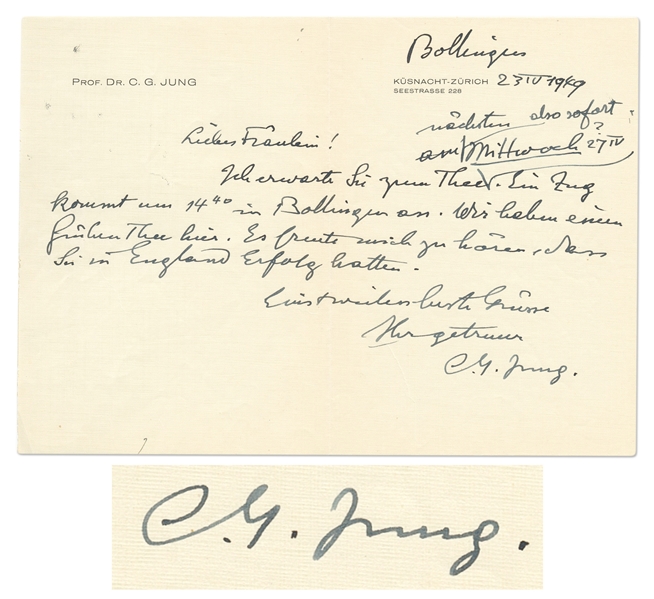 Bollingen
PROF. DR. C. G. JUNG
KÜSNACHT-ZÜRICH 23 IV 1949
SEESTRASSE 228
nächsten also sofort
am Mittwoch 27 IV
Liebes Fräulein!
Ich erwarte Sie zum Thee. Ein Zug
kommt um 14⁴⁰ in Bollingen an. Wir haben einen
frühen Thee hier. Es freute mich zu hören, dass
Sie in England Erfolg hatten.
Einstweilen beste Grüsse
Ihr getreuer
C.G. Jung.
C.G. Jung.